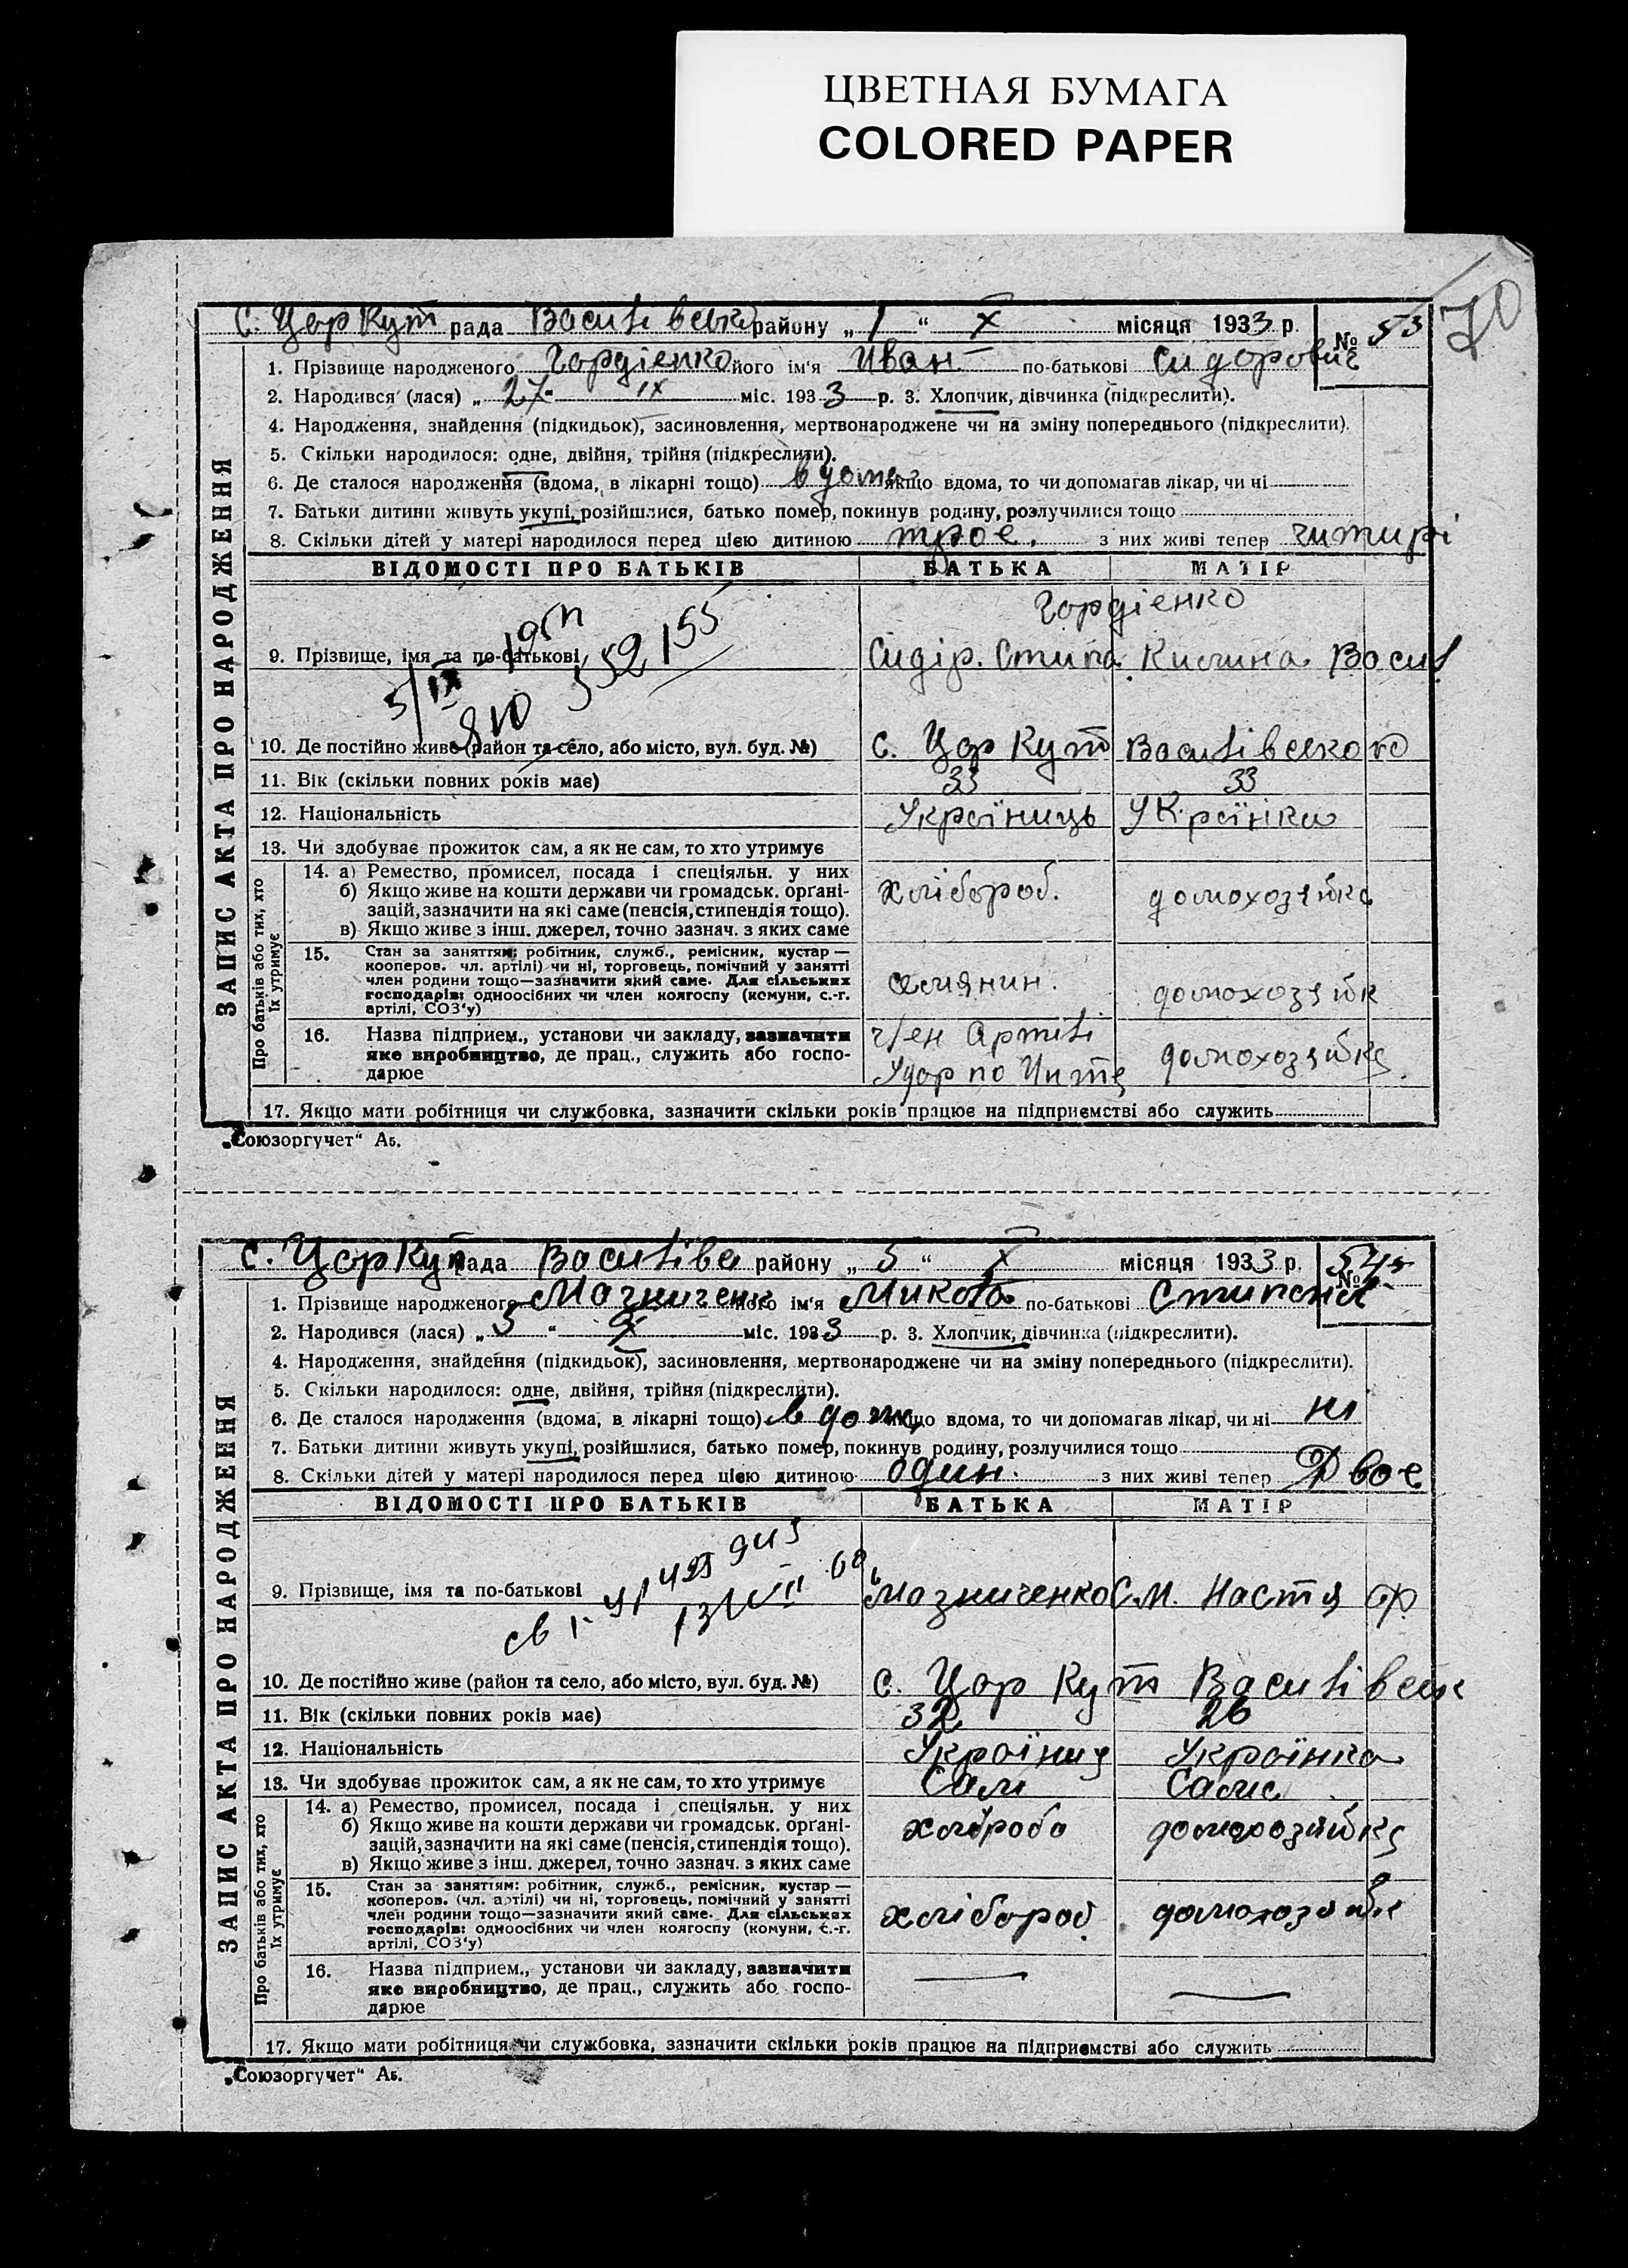 ЦВЕТНАЯ БУМАГА
COLORED PAPER
70
С. Цар Кут рада Василівськ району „ 1 “ X місяця 1933 р. № 53
1. Прізвище народженого Гордіенко його ім'я Иван по-батькові Сидорович
2. Народився (лася) „ 27 “ IX міс. 1933 р. 3. Хлопчик, дівчинка (підкреслити).
4. Народження, знайдення (підкидьок), засиновлення, мертвонароджене чи на зміну попереднього (підкреслити).
5. Скільки народилося: одне, двійня, трійня (підкреслити).
6. Де сталося народження (вдома, в лікарні тощо) вдома якщо вдома, то чи допомагав лікар, чи ні
7. Батьки дитини живуть укупі, розійшлися, батько помер, покинув родину, розлучилися тощо
8. Скільки дітей у матері народилося перед цією дитиною трое. з них живі тепер читирі
ЗАПИС АКТА ПРО НАРОДЖЕННЯ
ВІДОМОСТІ ПРО БАТЬКІВ БАТЬКА МАТІР
Гордіенко
9. Прізвище, імя та по-батькові Сидір. Стипа. Килина Васил
10. Де постійно живе (район та село, або місто, вул. буд. №) с. Цар Кут Василівського
11. Вік (скільки повних років має) 33 33
12. Національність Україниць Українка
13. Чи здобуває прожиток сам, а як не сам, то хто утримує
Про батьків або тих, хто їх утримує
14. а) Ремество, промисел, посада і спеціяльн. у них
б) Якщо живе на кошти держави чи громадськ. орґані-
зацій, зазначити на які саме (пенсія, стипендія тощо). хлібороб. домохозяйка
в) Якщо живе з інш. джерел, точно зазнач. з яких саме
15. Стан за заняттям: робітник, служб., ремісник, кустар —
кооперов. чл. артілі) чи ні, торговець, помічний у занятті
член родини тощо—зазначити який саме. Для сільських
господарів: одноосібних чи член колгоспу (комуни, с.-г.
артілі, СОЗ'у) селянин. домохозяйк
16. Назва підприєм., установи чи закладу, зазначити
яке виробництво, де прац., служить або госпо-
дарюе член Артілі домохозяйка
17. Якщо мати робітниця чи службовка, зазначити скільки років працює на підприємстві або служить
„Союзоргучет“ А5.
С. Цар Кут рада Василівс району „ 5 “ X місяця 1933 р. № 54
1. Прізвище народженого Мазниченк його ім'я Микола по-батькові
2. Народився (лася) „ 3 “ X міс. 1933 р. 3. Хлопчик, дівчинка (підкреслити).
4. Народження, знайдення (підкидьок), засиновлення, мертвонароджене чи на зміну попереднього (підкреслити).
5. Скільки народилося: одне, двійня, трійня (підкреслити).
6. Де сталося народження (вдома, в лікарні тощо) вдома якщо вдома, то чи допомагав лікар, чи ні ні
7. Батьки дитини живуть укупі, розійшлися, батько помер, покинув родину, розлучилися тощо
8. Скільки дітей у матері народилося перед цією дитиною один. з них живі тепер Двое
ЗАПИС АКТА ПРО НАРОДЖЕННЯ
ВІДОМОСТІ ПРО БАТЬКІВ БАТЬКА МАТІР
9. Прізвище, імя та по-батькові Мазниченко С.М. Настя Ф
10. Де постійно живе (район та село, або місто, вул. буд. №) с. Цар Кут Василівськ
11. Вік (скільки повних років має) 32 26
12. Національність Україниц Українка
13. Чи здобуває прожиток сам, а як не сам, то хто утримує Сам Сама
Про батьків або тих, хто їх утримує
14. а) Ремество, промисел, посада і спеціяльн. у них
б) Якщо живе на кошти держави чи громадськ. орґані-
зацій, зазначити на які саме (пенсія, стипендія тощо). домохозяйка
в) Якщо живе з інш. джерел, точно зазнач. з яких саме
15. Стан за заняттям: робітник, служб., ремісник, кустар —
кооперов. (чл. артілі) чи ні, торговець, помічний у занятті
член родини тощо—зазначити який саме. Для сільських
господарів: одноосібних чи член колгоспу (комуни, с.-г.
артілі, СОЗ'у) хлібороб домохозяйк
16. Назва підприєм., установи чи закладу, зазначити
яке виробництво, де прац., служить або госпо-
дарюе
17. Якщо мати робітниця чи службовка, зазначити скільки років працює на підприємстві або служить
„Союзоргучет“ А5.